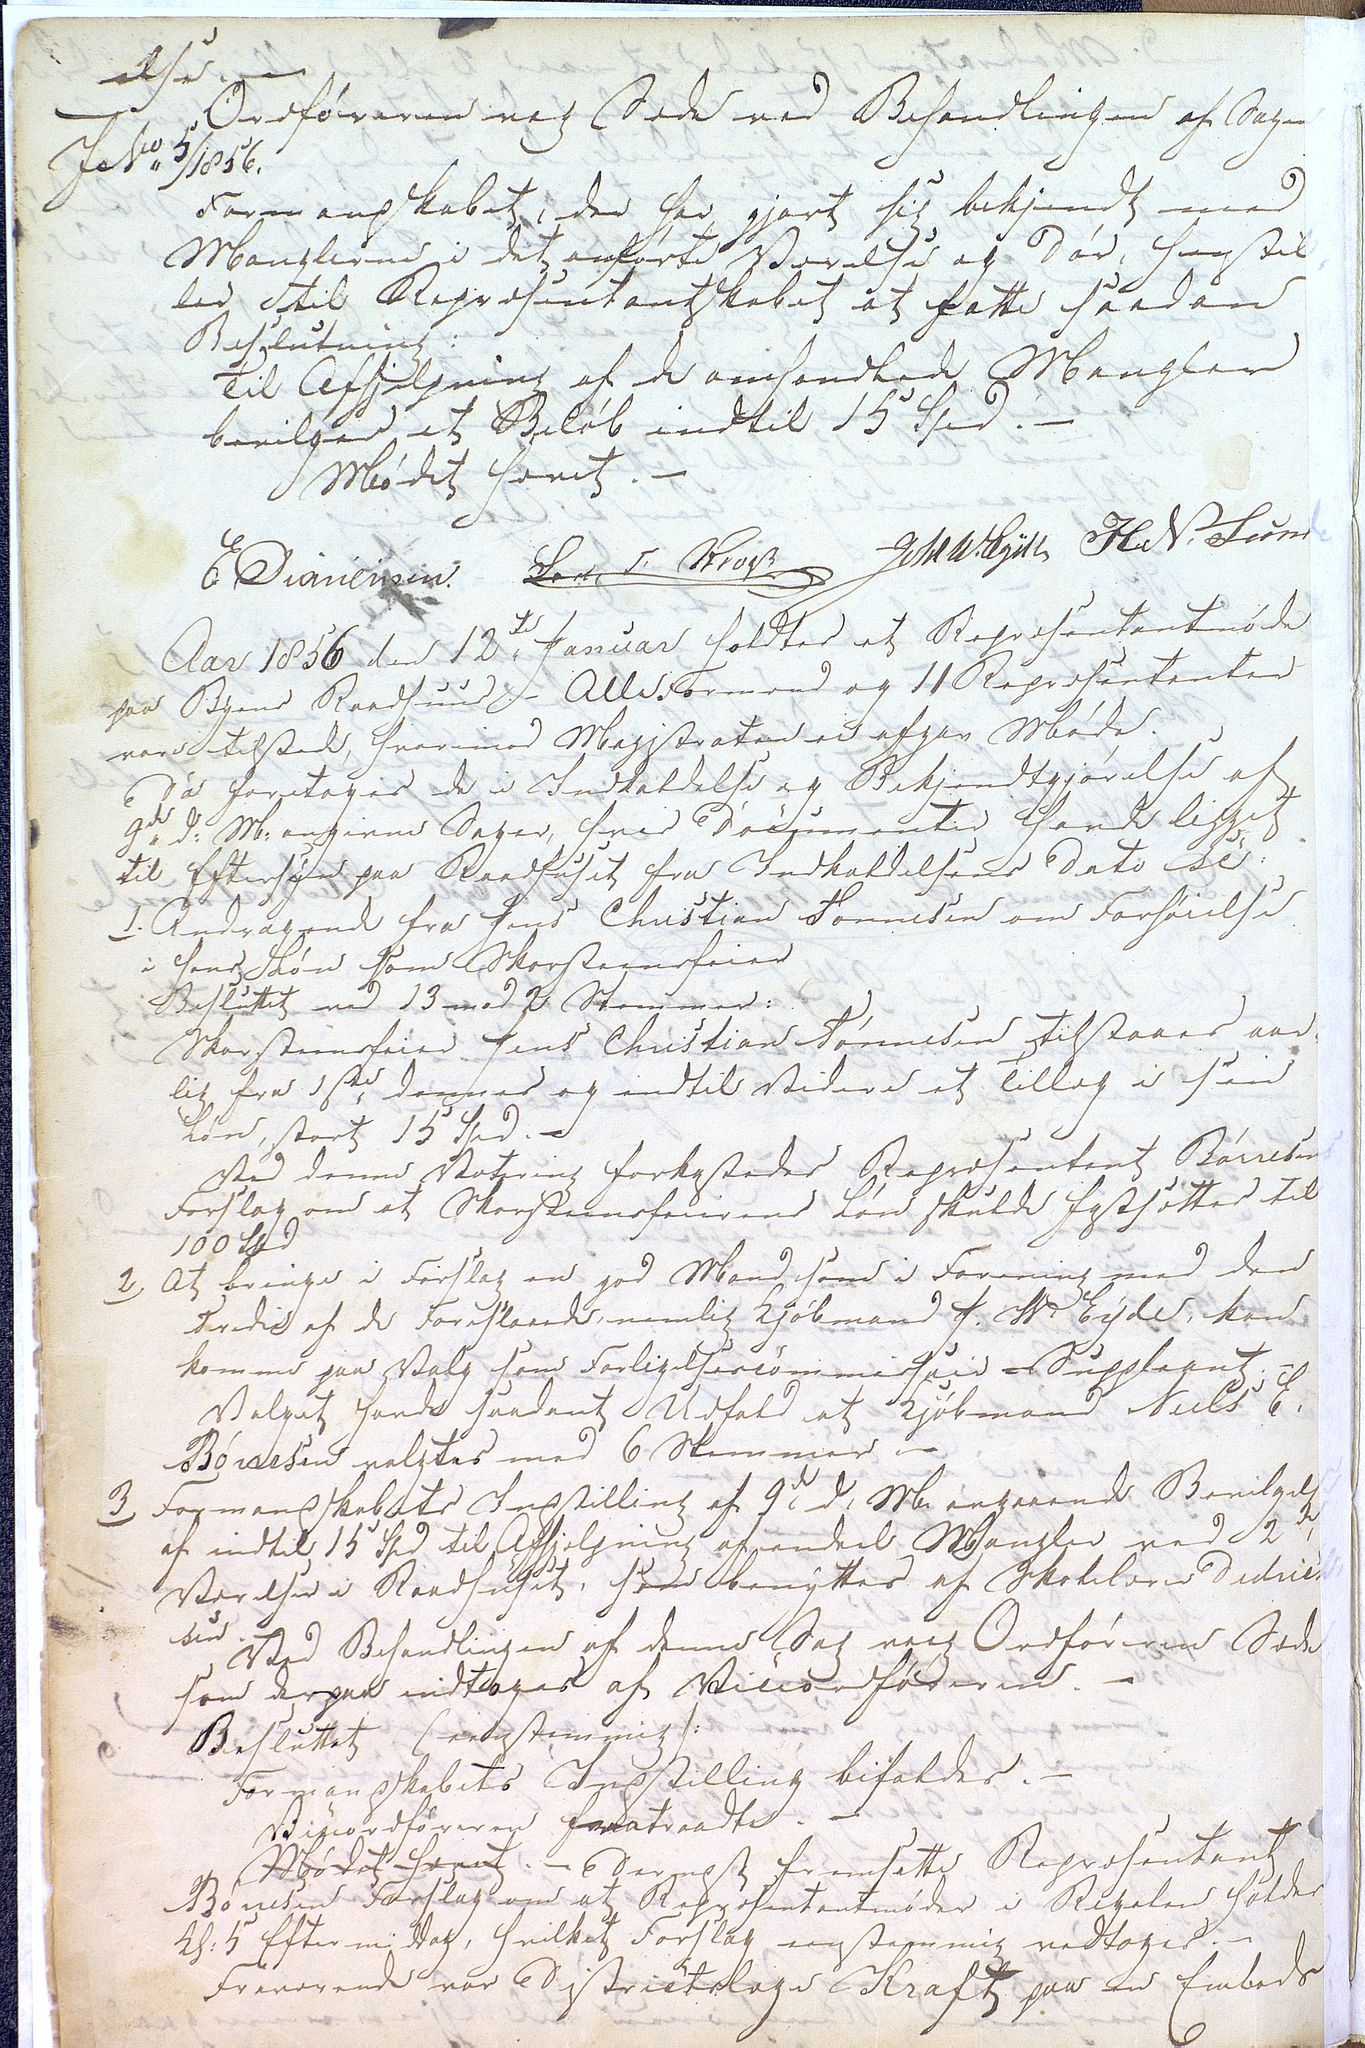 else. —
Ordføreren veg Sæde ved Behandlingen af Sagen
J. No. 5/1856.
Formandskabet, der har gjort sig bekjendt med
Manglerne i det anførte Værelse og Dør, henstil-
ler til Repræsentantskabet at fatte saadan
Beslutning:
Til Afhjelpning af de omhandlede Mangler
bevilges et Beløb indtil 15 Spd. —
Mødet hævet. —
E Dianensen. Krogh H. N.
Aar 1856 den 12te Januar holdtes et Repræsentantmøde
paa Byens Raadhuus. — Alle Formænd og 11 Repræsentanter
vare tilstede, hvorimod Magistraten ei afgav Møde.
Der foretoges de i Indkaldelse og Bekjendtgjørelse af
9de d: M: angivne Sager, hvis Documenter havde ligget
til Eftersyn paa Raadhuset fra Indkaldelsens Dato
1. Andragende fra Jens Christian Tønnesen om Forhøielse
i hans Løn som Skorsteensfeier
Besluttet med 13 mod 2 Stemmer:
Skorsteensfeier Jens Christian Tønnesen tilstaaes aar-
lig fra 1ste dennes og indtil Videre et Tillæg i sin
Løn, stort 15 Spd. —
Ved denne Votering forkastedes Repræsentant Børresen
Forslag om at Skorsteensfeierens Løn skulde fastsættes til
100 Spd
2, At bringe i Forslag en god Mand som i Forening med den
Tredie af de Foreslaaede, nemlig Kjøbmand J. W. Eyde, kan
komme paa Valg som Forligelsescommissair-Suppleant. —
Valget havde saadant Udfald at Kjøbmand Niels E.
Børresen valgtes med 6 Stemmer —
3, Formandskabets Indstilling af 9de d. M. angaaende Bevilgelse
af indtil 15 Spd til Afhjelpning af endeel Mangler ved 2de
Værelser i Raadhuset, som benyttes af Skolelærer Dedric-
sen.
Ved Behandlingen af denne Sag veeg Ordføreren Sæde
som derpaa indtoges af Viceordføreren. —
Besluttet (eenstemmig):
Formandskabets Indstilling bifaldes. —
Viceordføreren fratraadte. —
Mødet hævet. — Dernæst fremsatte Repræsentant
Børresen Forslag om at Repræsentantmøder i Regelen holdes
Kl: 5 Eftermiddag, hvilket Forslag eenstemmig vedtoges. —
Fraværende var Districtslæge Kraft paa en Embeds